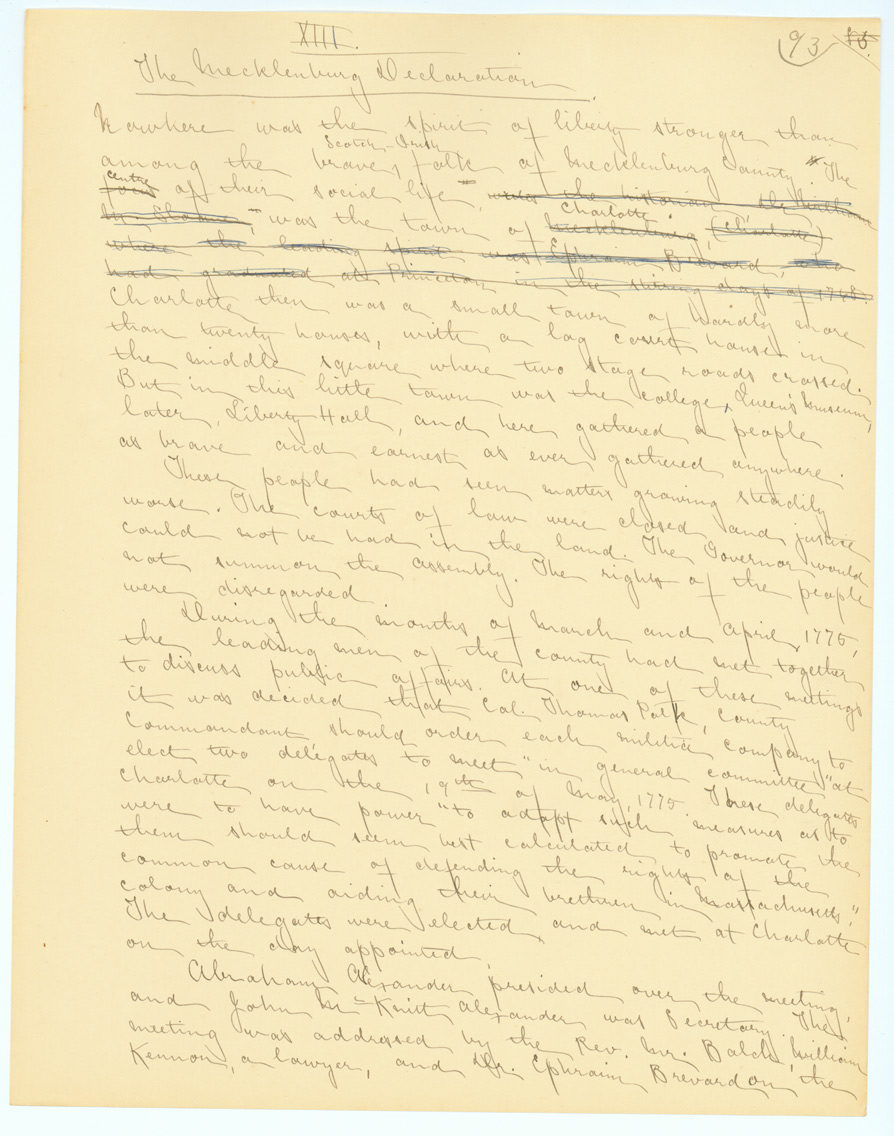 XIII.
93
The Mecklenburg Declaration.
Nowhere was the spirit of liberty stronger than
Scotch-Irish
among the brave, folk of Mecklenburg County. "The
centre
focus of their social life" was the historian
" was the town of Charlotte. Mecklenburg, (Charlotte)
where the leading spirit was Ephraim Brevard, who
had graduated at Princeton in the stirring days of 1768.
Charlotte then was a small town of hardly more
than twenty houses, with a log court house in
the middle square where two stage roads crossed.
But in this little town was the college, Queen's Museum,
later, Liberty Hall, and here gathered a people
as brave and earnest as ever gathered anywhere.
These people had seen matters growing steadily
worse. The courts of law were closed and justice
could not be had in the land. The Governor would
not summon the assembly. The rights of the people
were disregarded.
During the months of March and April, 1775,
the leading men of the county had met together
to discuss public affairs. At one of these meetings
it was decided that Col. Thomas Polk, county
Commandant should order each militia company to
elect two delegates to meet "in general committee" at
Charlotte on the 19th of May, 1775. These delegates
were to have power "to adopt such measures as to
them should seem best calculated to promote the
common cause of defending the rights of the
colony and aiding their brethren in Massachusetts".
The delegates were elected, and met at Charlotte
on the day appointed.
Abraham Alexander presided over the meeting,
and John McKnitt Alexander was Secretary. The
meeting was addressed by the Rev. Mr. Balch, William
Kennon, a lawyer, and Dr. Ephraim Brevard on the